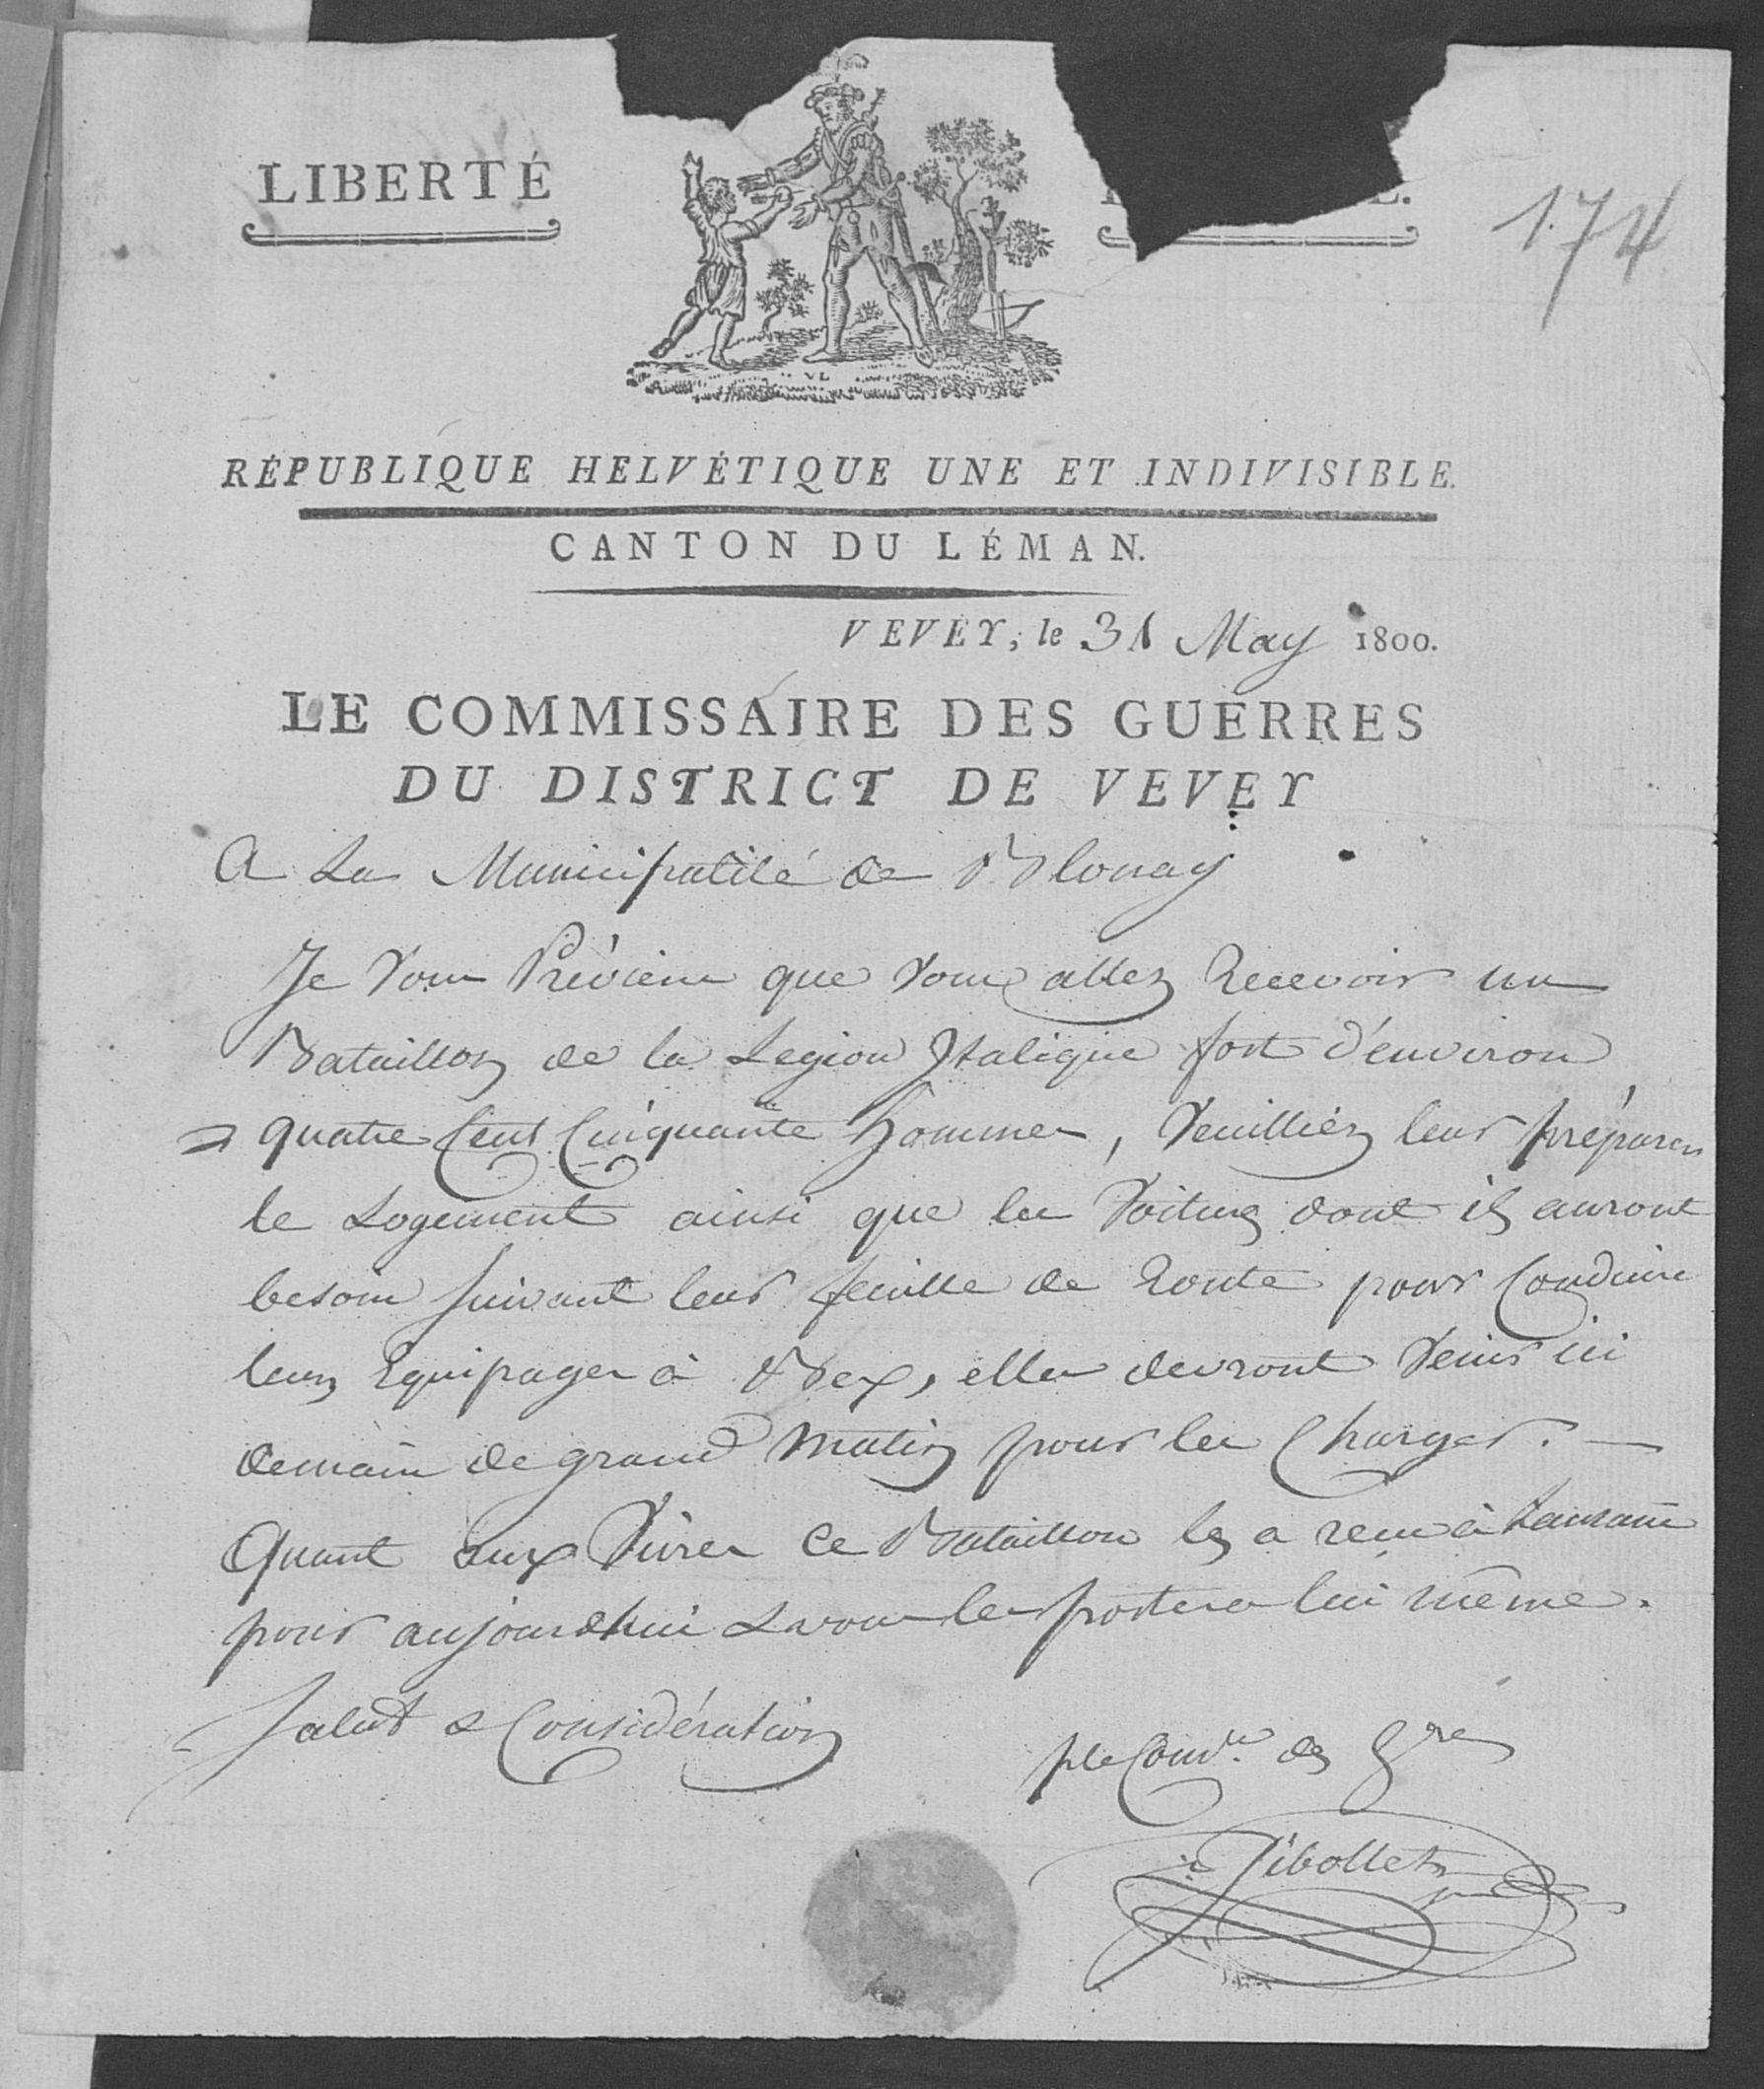 LIBERTÉ
174
RÉPUBLIQUE HELVÉTIQUE UNE ET INDIVISIBLE.
CANTON DU LÉMAN.
VEVEY, le 31 May 1800.
LE COMMISSAIRE DES GUERRES
DU DISTRICT DE VEVEY
A La Municipalité de Blonay
Je Vous Préviens que Vous allez Recevoir un
Bataillon de la Legion Italique fort d'environ
quatre Cent Cinquante hommes, Veuilliéz leur préparer
le Logement ainsi que les Voitures dont ils auront
besoin suivant leur feuille de Route pour Conduire
leurs Equipages à Bex, elles devront Venir ici
demain de grand Matin pour les Charger. —
Quant aux Vivres Ce Bataillon les a reçu à Lausanne
pour aujourdhui & vous les portera lui même.
Salut & Considération
p le Comre. des Gres
Pibollet